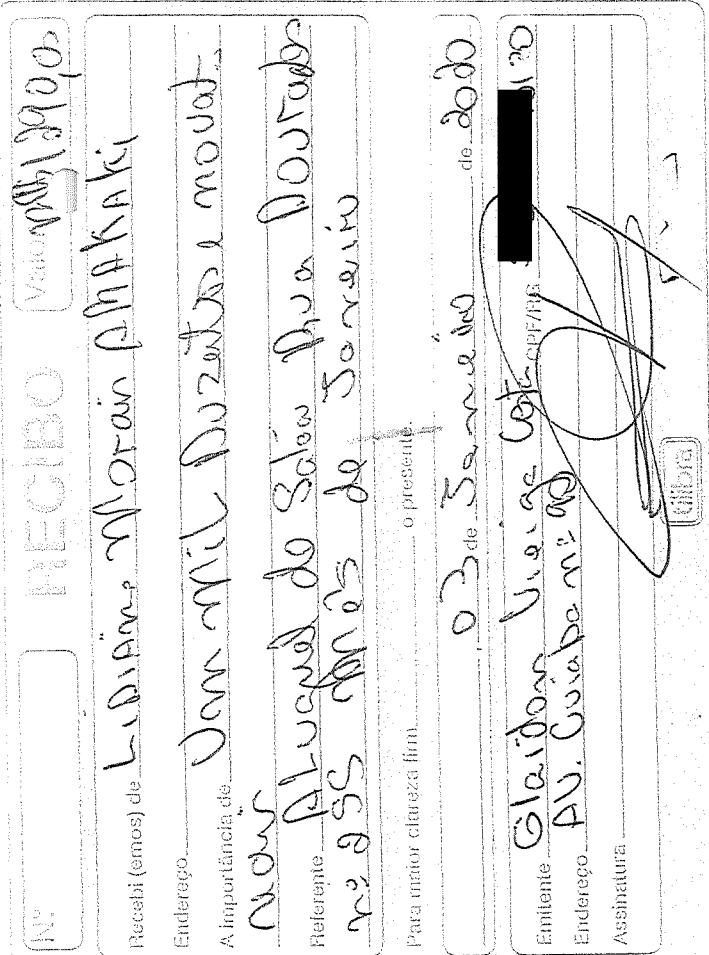 Nº RECIBO Valor 1290,0
Recebi (emos) de Lidiane Morain AMAKAKi
Endereço
A importância de Um mil Duzentos e novat
Referente ALuguel de Salão Rua Dourados
nº 255 Mês de Janeiro
Para maior clareza firm o presente.
03 de Janeiro de 2020
Emitente Glaidson Vieira Costa CPF/RG
Endereço AV. Cuiaba nº 90
Assinatura
tilibra